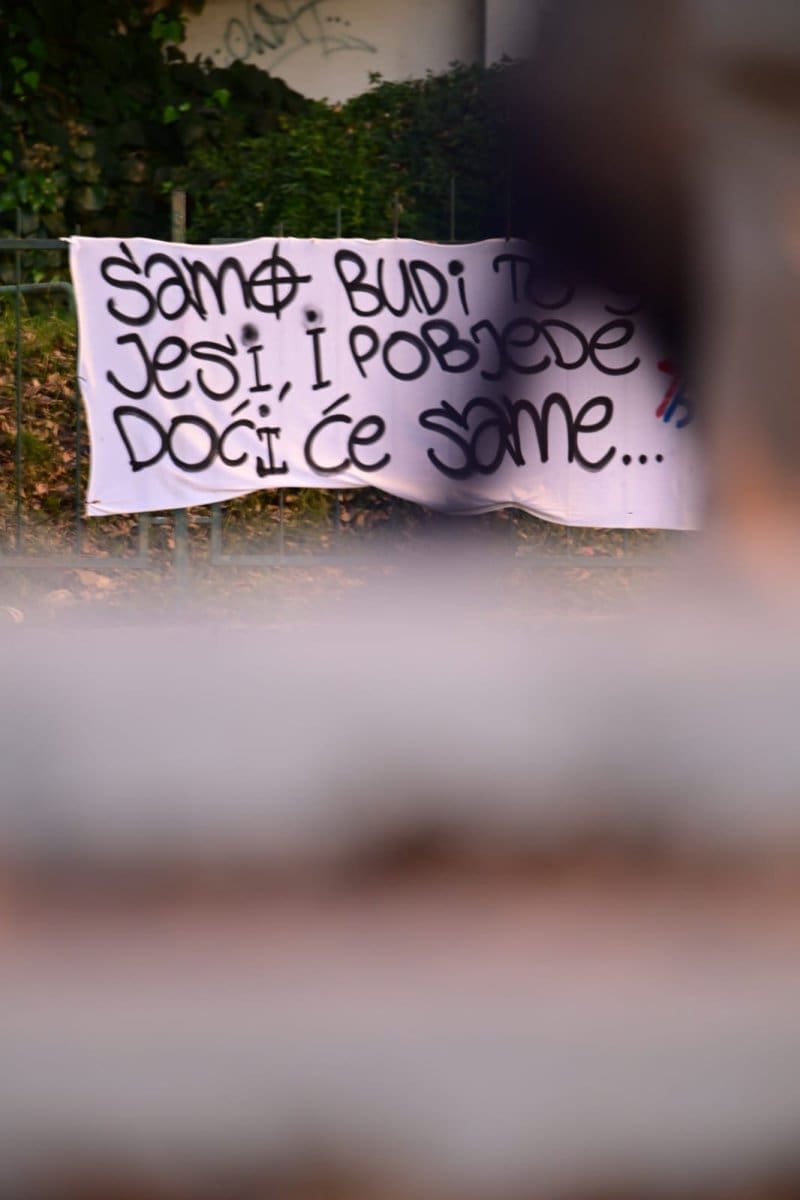 SAMO BUDI TO Š
JESI, I POBJEDE
DOĆI ĆE SAME...